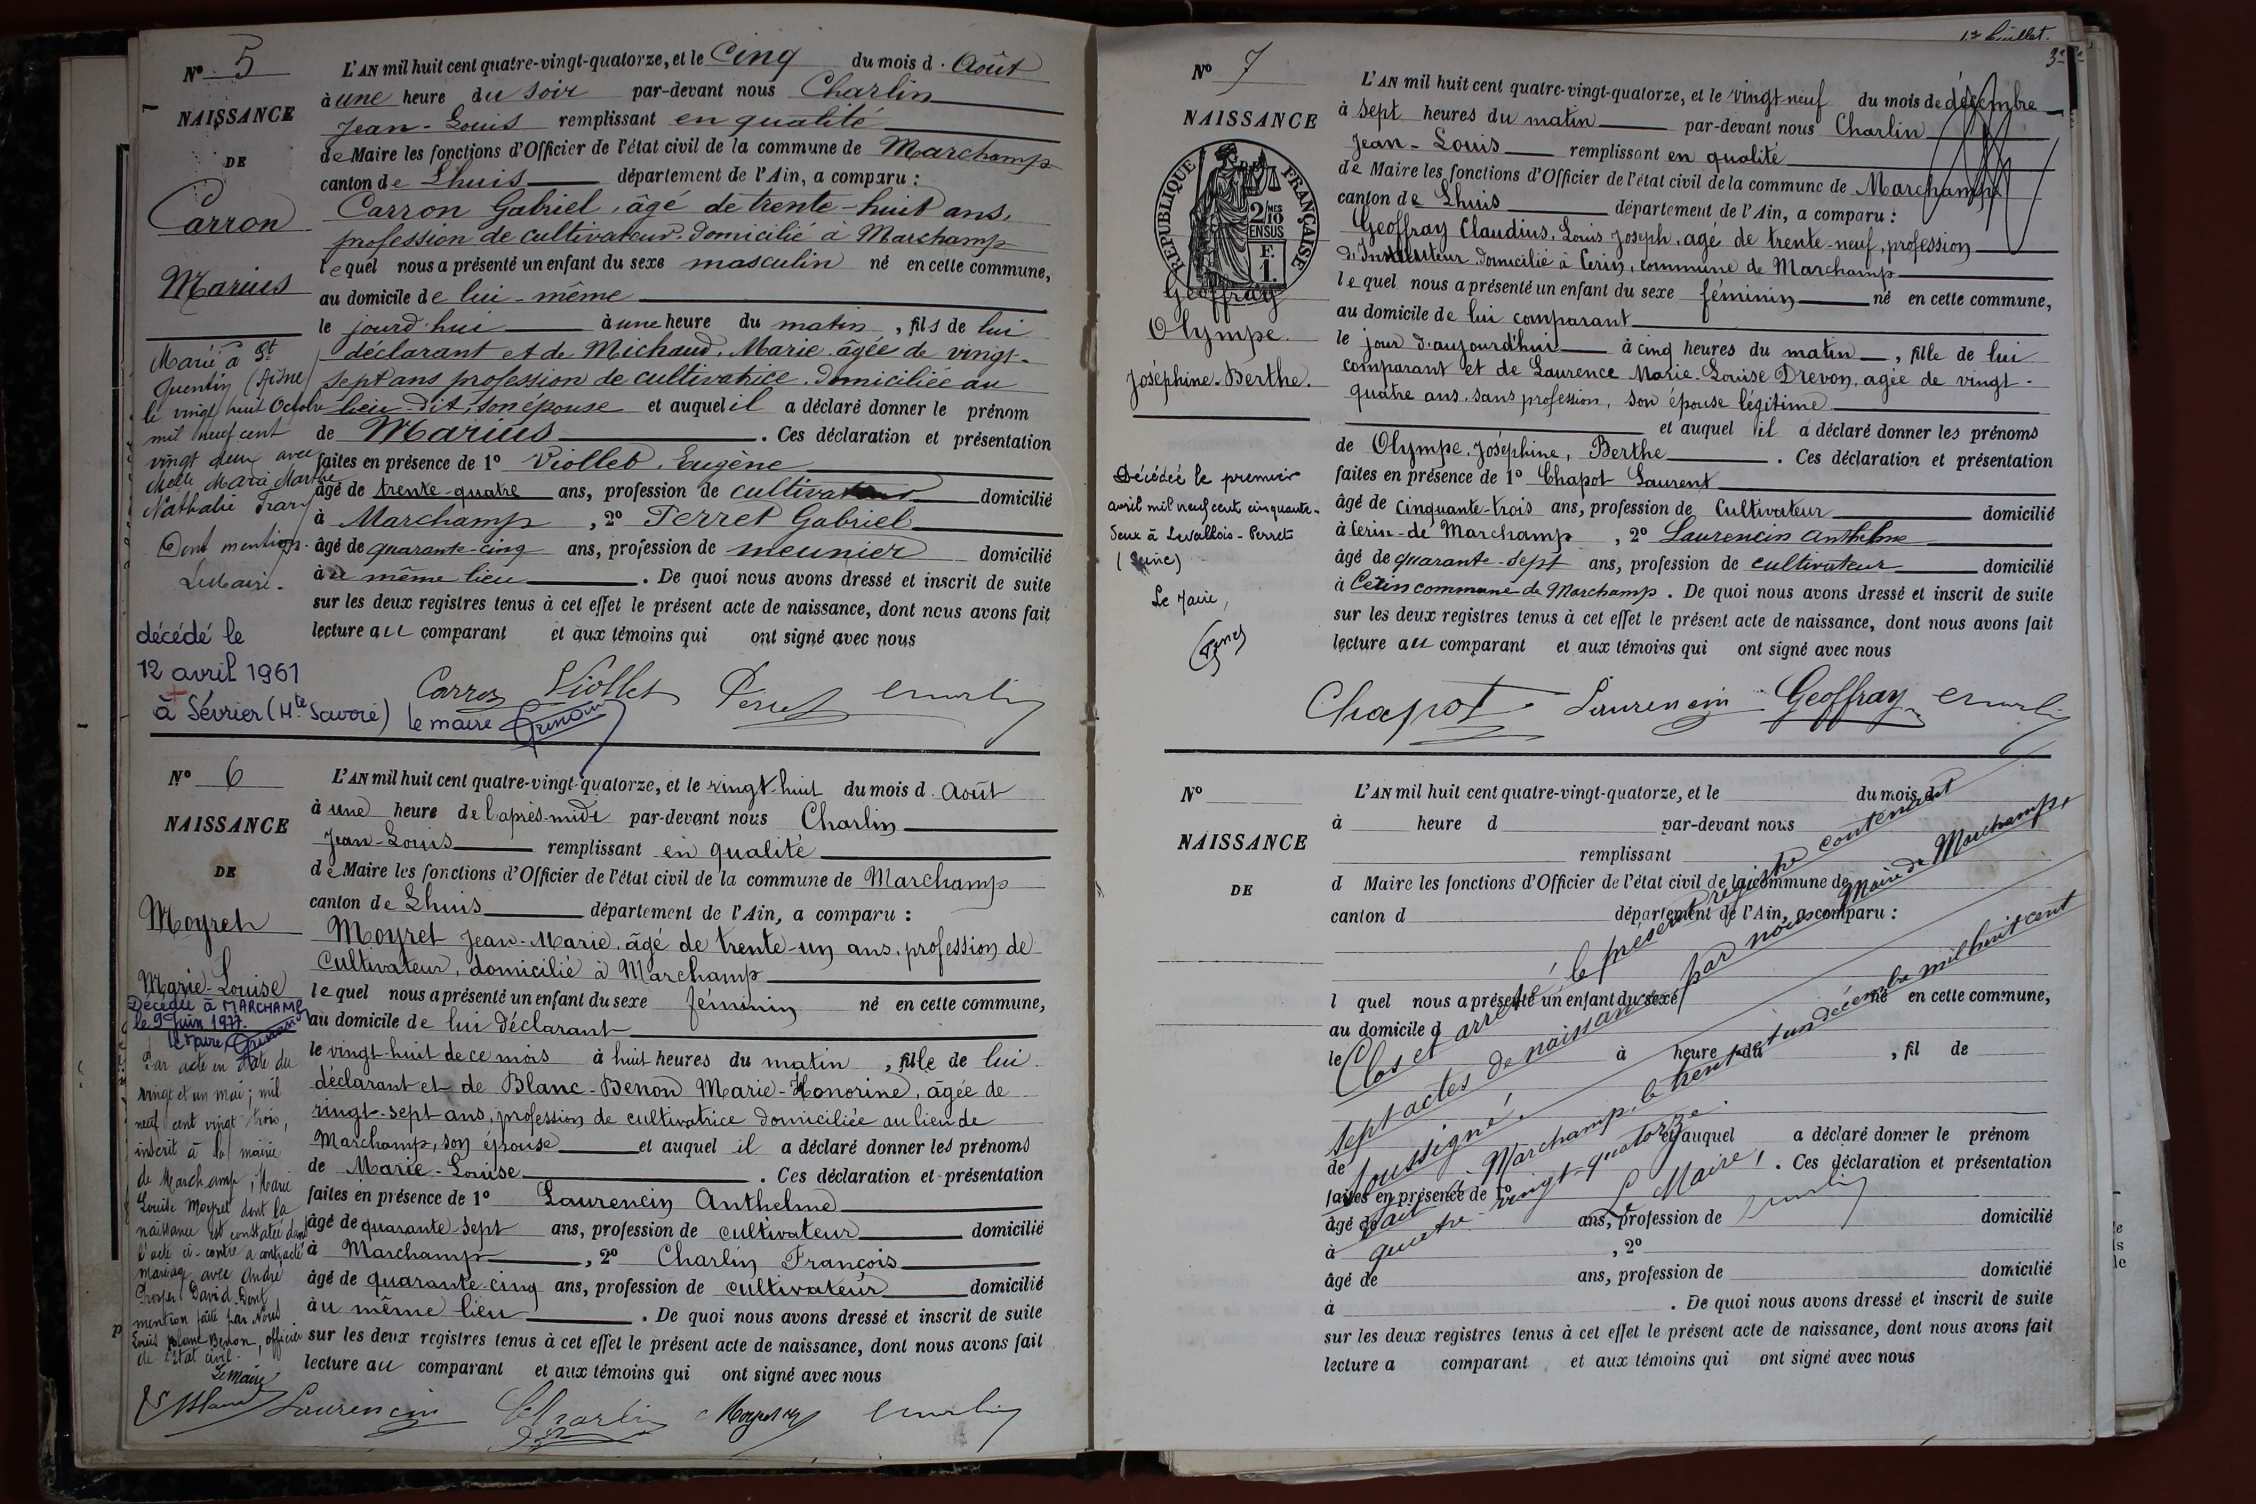 N° 5
NAISSANCE
DE
Carron
Marius
L'AN mil huit cent quatre-vingt-quatorze, et le cinq du mois d Août
à une heure du soir par-devant nous Charlin
Jean-Louis remplissant en qualité
de Maire les fonctions d'Officier de l'état civil de la commune de Marchamp
canton de Lhuis département de l'Ain, a comparu :
Carron Gabriel, âgé de trente-huit ans,
profession de cultivateur, domicilié à Marchamp
lequel nous a présenté un enfant du sexe masculin né en cette commune,
au domicile de lui-même
le jourd'hui à une heure du matin, fils de lui
déclarant et de Michaud, Marie âgée de vingt-
sept ans profession de cultivatrice, domiciliée au
lieu dit, son épouse et auquel il a déclaré donner le prénom
de Marius . Ces déclaration et présentation
faites en présence de 1° Viollet, Eugène
âgé de trente-quatre ans, profession de cultivateur domicilié
à Marchamp, 2° Perret Gabriel
âgé de quarante-cinq ans, profession de meunier domicilié
au même lieu . De quoi nous avons dressé et inscrit de suite
sur les deux registres tenus à cet effet le présent acte de naissance, dont nous avons fait
lecture au comparant et aux témoins qui ont signé avec nous
Marié à St
Quentin (Aisne)
le vingt huit Octobre
mil neuf cent
vingt deux avec
Melle Marie Marthe
Nathalie
Dont mention.
Le Maire.
décédé le
12 avril 1961
à Sévrier (Hte Savoie) le maire
Carron Viollet Perret
N° 6
NAISSANCE
DE
Moyret
Marie-Louise
L'AN mil huit cent quatre-vingt-quatorze, et le vingt-huit du mois d Août
à une heure de l'après-midi par-devant nous Charlin
Jean-Louis remplissant en qualité
de Maire les fonctions d'Officier de l'état civil de la commune de Marchamp
canton de Lhuis département de l'Ain, a comparu :
Moyret Jean-Marie, âgé de trente-un ans, profession de
cultivateur, domicilié à Marchamp
lequel nous a présenté un enfant du sexe féminin né en cette commune,
au domicile de lui déclarant
le vingt-huit de ce mois à huit heures du matin, fille de lui
déclarant et de Blanc-Benon Marie-Honorine, âgée de
vingt-sept ans, profession de cultivatrice domiciliée au lieu de
Marchamp, son épouse et auquel il a déclaré donner les prénoms
de Marie-Louise . Ces déclaration et présentation
faites en présence de 1° Laurencin Anthelme
âgé de quarante-sept ans, profession de cultivateur domicilié
à Marchamp, 2° Charlin François
âgé de quarante-cinq ans, profession de cultivateur domicilié
au même lieu . De quoi nous avons dressé et inscrit de suite
sur les deux registres tenus à cet effet le présent acte de naissance, dont nous avons fait
lecture au comparant et aux témoins qui ont signé avec nous
Décédée à MARCHAMP
le 9 Juin 1977.
le Maire
Par acte en date du
vingt et un mai ; mil
neuf cent vingt trois,
inscrit à la mairie
de Marchamp, Marie
Louise Moyret dont la
naissance est constatée dans
l'acte ci-contre a contracté
mariage avec André
Prosper David. Dont
mention faite par Nous
Louis Blanc Benon, officier
de l'état civil.
Le Maire
Laurencin Charlin Moyret
1er feuillet.
3e
N° 7
NAISSANCE
REPUBLIQUE FRANÇAISE
2/10
EN SUS
Geoffray
Olympe.
Joséphine-Berthe.
L'AN mil huit cent quatre-vingt-quatorze, et le vingt-neuf du mois de décembre
à sept heures du matin par-devant nous Charlin
Jean-Louis remplissant en qualité
de Maire les fonctions d'Officier de l'état civil de la commune de Marchamp
canton de Lhuis département de l'Ain, a comparu :
Geoffray Claudius, Louis Joseph, agé de trente-neuf, profession
d'Instituteur domicilié à Cerin, commune de Marchamp
lequel nous a présenté un enfant du sexe féminin né en cette commune,
au domicile de lui comparant
le jour d'aujourd'hui à cinq heures du matin, fille de lui
comparant et de Laurence Marie-Louise Drevon, agée de vingt-
quatre ans, sans profession, son épouse légitime
et auquel il a déclaré donner les prénoms
de Olympe, Joséphine, Berthe . Ces déclaration et présentation
faites en présence de 1° Chapot Laurent
âgé de cinquante-trois ans, profession de Cultivateur domicilié
à Cerin-de Marchamp, 2° Laurencin Anthelme
âgé de quarante-sept ans, profession de cultivateur domicilié
à Cerin commune de Marchamp . De quoi nous avons dressé et inscrit de suite
sur les deux registres tenus à cet effet le présent acte de naissance, dont nous avons fait
lecture au comparant et aux témoins qui ont signé avec nous
Décédée le premier
avril mil neuf cent cinquante-
deux à Levallois-Perret
(Seine)
Le Maire,
Chapot Laurencin Geoffray
N°
NAISSANCE
DE
L'AN mil huit cent quatre-vingt-quatorze, et le du mois d
à heure d par-devant nous
remplissant
d Maire les fonctions d'Officier de l'état civil de la commune de
canton d département de l'Ain, a comparu :
l quel nous a présenté un enfant du sexe né en cette commune,
au domicile d
le à heure du , fil de
et auquel a déclaré donner le prénom
de . Ces déclaration et présentation
faites en présence de 1°
âgé de ans, profession de domicilié
à , 2°
âgé de ans, profession de domicilié
à . De quoi nous avons dressé et inscrit de suite
sur les deux registres tenus à cet effet le présent acte de naissance, dont nous avons fait
lecture a comparant et aux témoins qui ont signé avec nous
Clos et arrêté le présent registre contenant
sept actes de naissance par nous Maire de Marchamp,
soussigné.
Fait à Marchamp, le trente et un décembre mil huit cent
quatre-vingt-quatorze.
Le Maire,